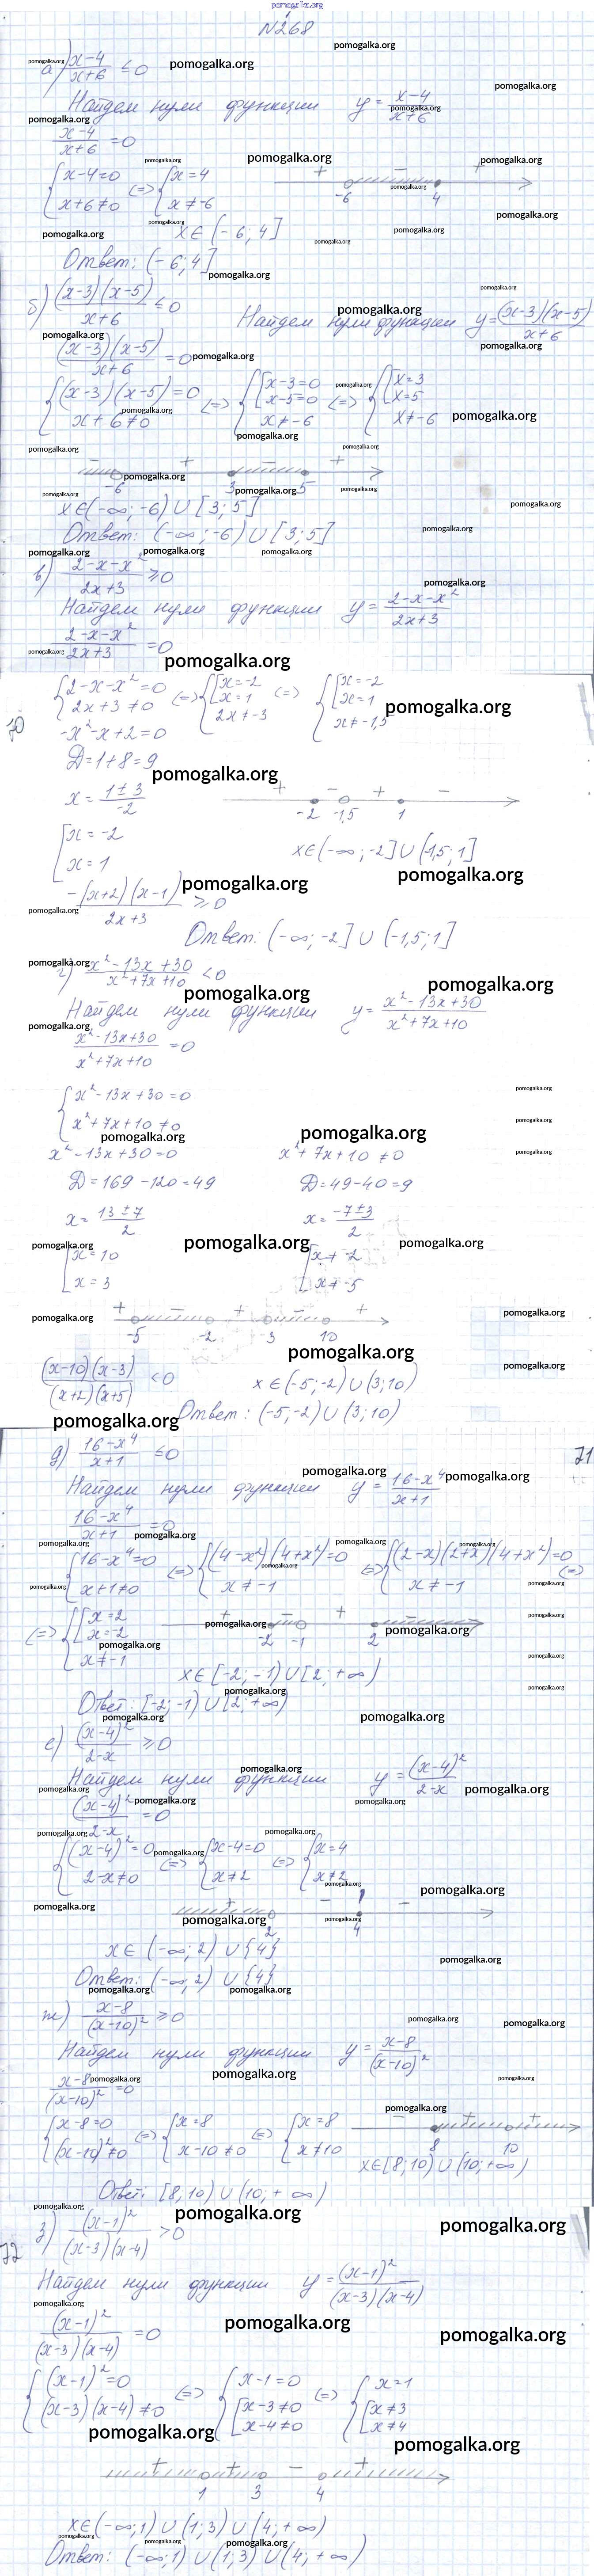 pomogalka.org
N268
а) (x-4)/(x+6) ≤ 0
Найдем нули функции y = (x-4)/(x+6)
(x-4)/(x+6) = 0
{ x-4=0 x+6≠0 (=) { x=4 x≠-6
+ - +
-6 4
x∈(-6; 4]
Ответ: (-6; 4]
б) (x-3)(x-5)/(x+6) ≤ 0 Найдем нули функции y = (x-3)(x-5)/(x+6)
(x-3)(x-5)/(x+6) = 0
{ (x-3)(x-5)=0 x+6≠0 (=) { [ x-3=0 x-5=0 x≠-6 (=) { [ x=3 x=5 x≠-6
- + - +
-6 3 5
x∈(-∞; -6) ∪ [3; 5]
Ответ: (-∞; -6) ∪ [3; 5]
в) (2-x-x²)/(2x+3) ≥ 0
Найдем нули функции y = (2-x-x²)/(2x+3)
(2-x-x²)/(2x+3) = 0
70
{ 2-x-x²=0 2x+3≠0 (=) { [ x=-2 x=1 2x≠-3 (=) { [ x=-2 x=1 x≠-1,5
-x²-x+2=0
D=1+8=9
x = (1±3)/(-2)
+ - + -
-2 -1,5 1
[ x=-2 x=1
x∈(-∞; -2] ∪ (-1,5; 1]
-(x+2)(x-1)/(2x+3) ≥ 0
Ответ: (-∞; -2] ∪ (-1,5; 1]
г) (x²-13x+30)/(x²+7x+10) < 0
Найдем нули функции y = (x²-13x+30)/(x²+7x+10)
(x²-13x+30)/(x²+7x+10) = 0
{ x²-13x+30=0 x²+7x+10≠0
x²-13x+30=0 x²+7x+10≠0
D=169-120=49 D=49-40=9
x = (13±7)/2 x = (-7±3)/2
[ x=10 x=3 [ x≠-2 x≠-5
+ - + - +
-5 -2 3 10
(x-10)(x-3)/(x+2)(x+5) < 0 x∈(-5; -2) ∪ (3; 10)
Ответ: (-5; -2) ∪ (3; 10)
71
д) (16-x⁴)/(x+1) ≤ 0
Найдем нули функции y = (16-x⁴)/(x+1)
(16-x⁴)/(x+1) = 0
{ 16-x⁴=0 x+1≠0 (=) { (4-x²)(4+x²)=0 x≠-1 (=) { (2-x)(2+x)(4+x²)=0 x≠-1 (=)
(=) { [ x=2 x=-2 x≠-1
+ - + -
-2 -1 2
x∈[-2; -1) ∪ [2; +∞)
Ответ: [-2; -1) ∪ [2; +∞)
е) (x-4)²/(2-x) ≥ 0
Найдем нули функции y = (x-4)²/(2-x)
(x-4)²/(2-x) = 0
{ (x-4)²=0 2-x≠0 (=) { x-4=0 x≠2 (=) { x=4 x≠2
+ - -
2 4
x∈(-∞; 2) ∪ {4}
Ответ: (-∞; 2) ∪ {4}
ж) (x-8)/(x-10)² ≥ 0
Найдем нули функции y = (x-8)/(x-10)²
(x-8)/(x-10)² = 0
{ x-8=0 (x-10)²≠0 (=) { x=8 x-10≠0 (=) { x=8 x≠10
- + +
8 10
x∈[8; 10) ∪ (10; +∞)
Ответ: [8; 10) ∪ (10; +∞)
72
з) (x-1)²/(x-3)(x-4) > 0
Найдем нули функции y = (x-1)²/(x-3)(x-4)
(x-1)²/(x-3)(x-4) = 0
{ (x-1)²=0 (x-3)(x-4)≠0 (=) { x-1=0 [ x-3≠0 x-4≠0 (=) { x=1 [ x≠3 x≠4
+ + - +
1 3 4
x∈(-∞; 1) ∪ (1; 3) ∪ (4; +∞)
Ответ: (-∞; 1) ∪ (1; 3) ∪ (4; +∞)